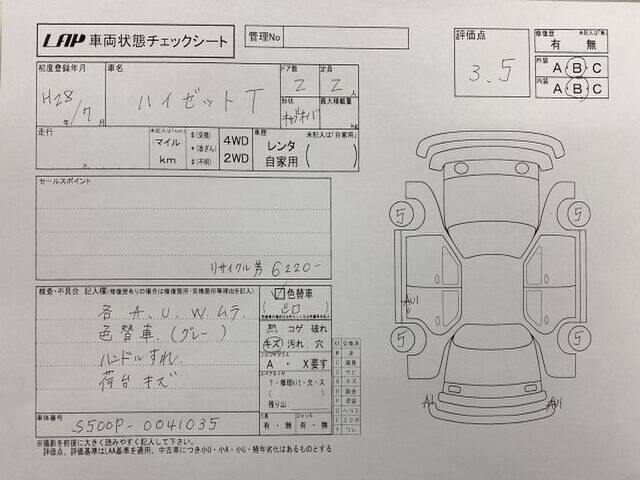 LAP 車両状態チェックシート
管理No
評価点
3.5
修復歴 未記入は「無」
有 無
外装
A・B・C
内装
A・B・C
初度登録年月
H28/7
年 月
車名
ハイゼットT
ドア数
2
定員
2人
形状
キャブオーバ
最大積載量
kg
走行
未記入は(km)
マイル
km
$(交換)
*(改ざん)
#(不明)
4WD
2WD
車歴 未記入は「自家用」
レンタ
自家用
セールスポイント
リサイクル券 6220-
検査・不具合 記入欄(修復歴有りの場合は修復箇所・交換箇所等理由を記入)
各A.U.W.ムラ.
色替車.(グレー)
ハンドルすれ.
荷台キズ
色替車
コゲ 破れ
キズ 汚れ 穴
フロントガラス
A・X要す
スペアタイヤ
T・修理kit・欠・ス
残り山
工具
有・無
ジャッキ
有・無
車体番号
S500P-0041035
※撮影を前提に大きく読みやすく記入して下さい。
評価点、評価基準はLAA基準を適用、中古車につき小U・小A・小U・経年劣化はあるものとする
5
5
5
5
AU1
A1
AU1